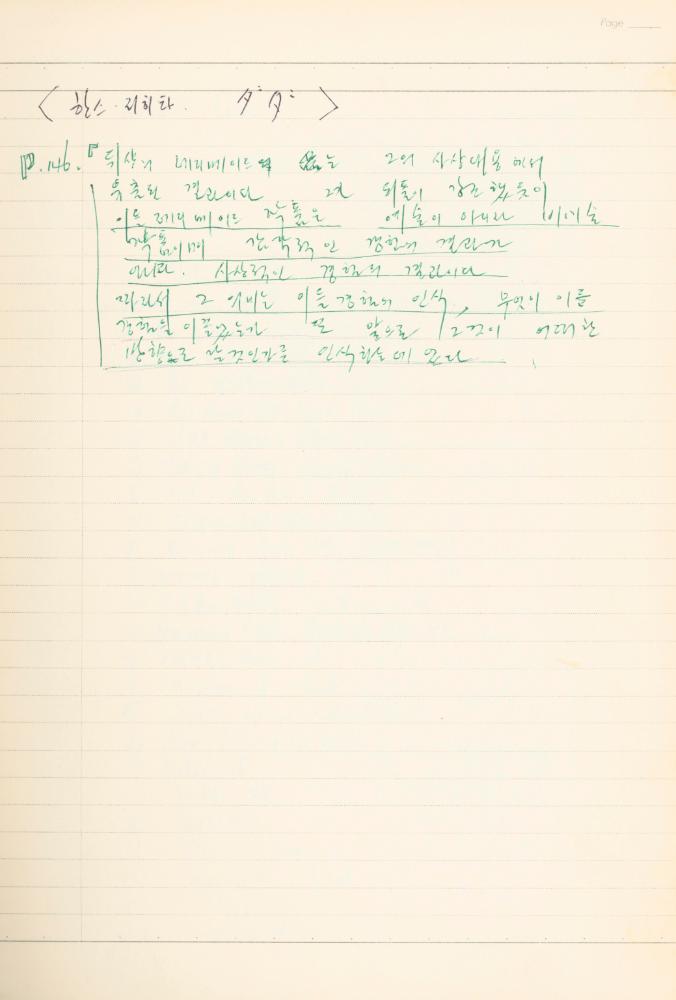 Page
< 한스·리히타. ダダ >
P.146. 『뒤샹의 레디메이드 는 그의 사상내용에서
추출된 결과이다 그 되풀이 강조했듯이
이들 레디메이드 작품은 예술이 아니라 비예술
작품이며 감각적인 경험의 결과가
아니라. 사상적인 경험의 결과이다
따라서 그 의미는 이들 경험의 인식, 무엇이 이를
경험을 이끌었는가 또 앞으로 그것이 어떠한
방향으로 갈것인가를 인식하는데 있다